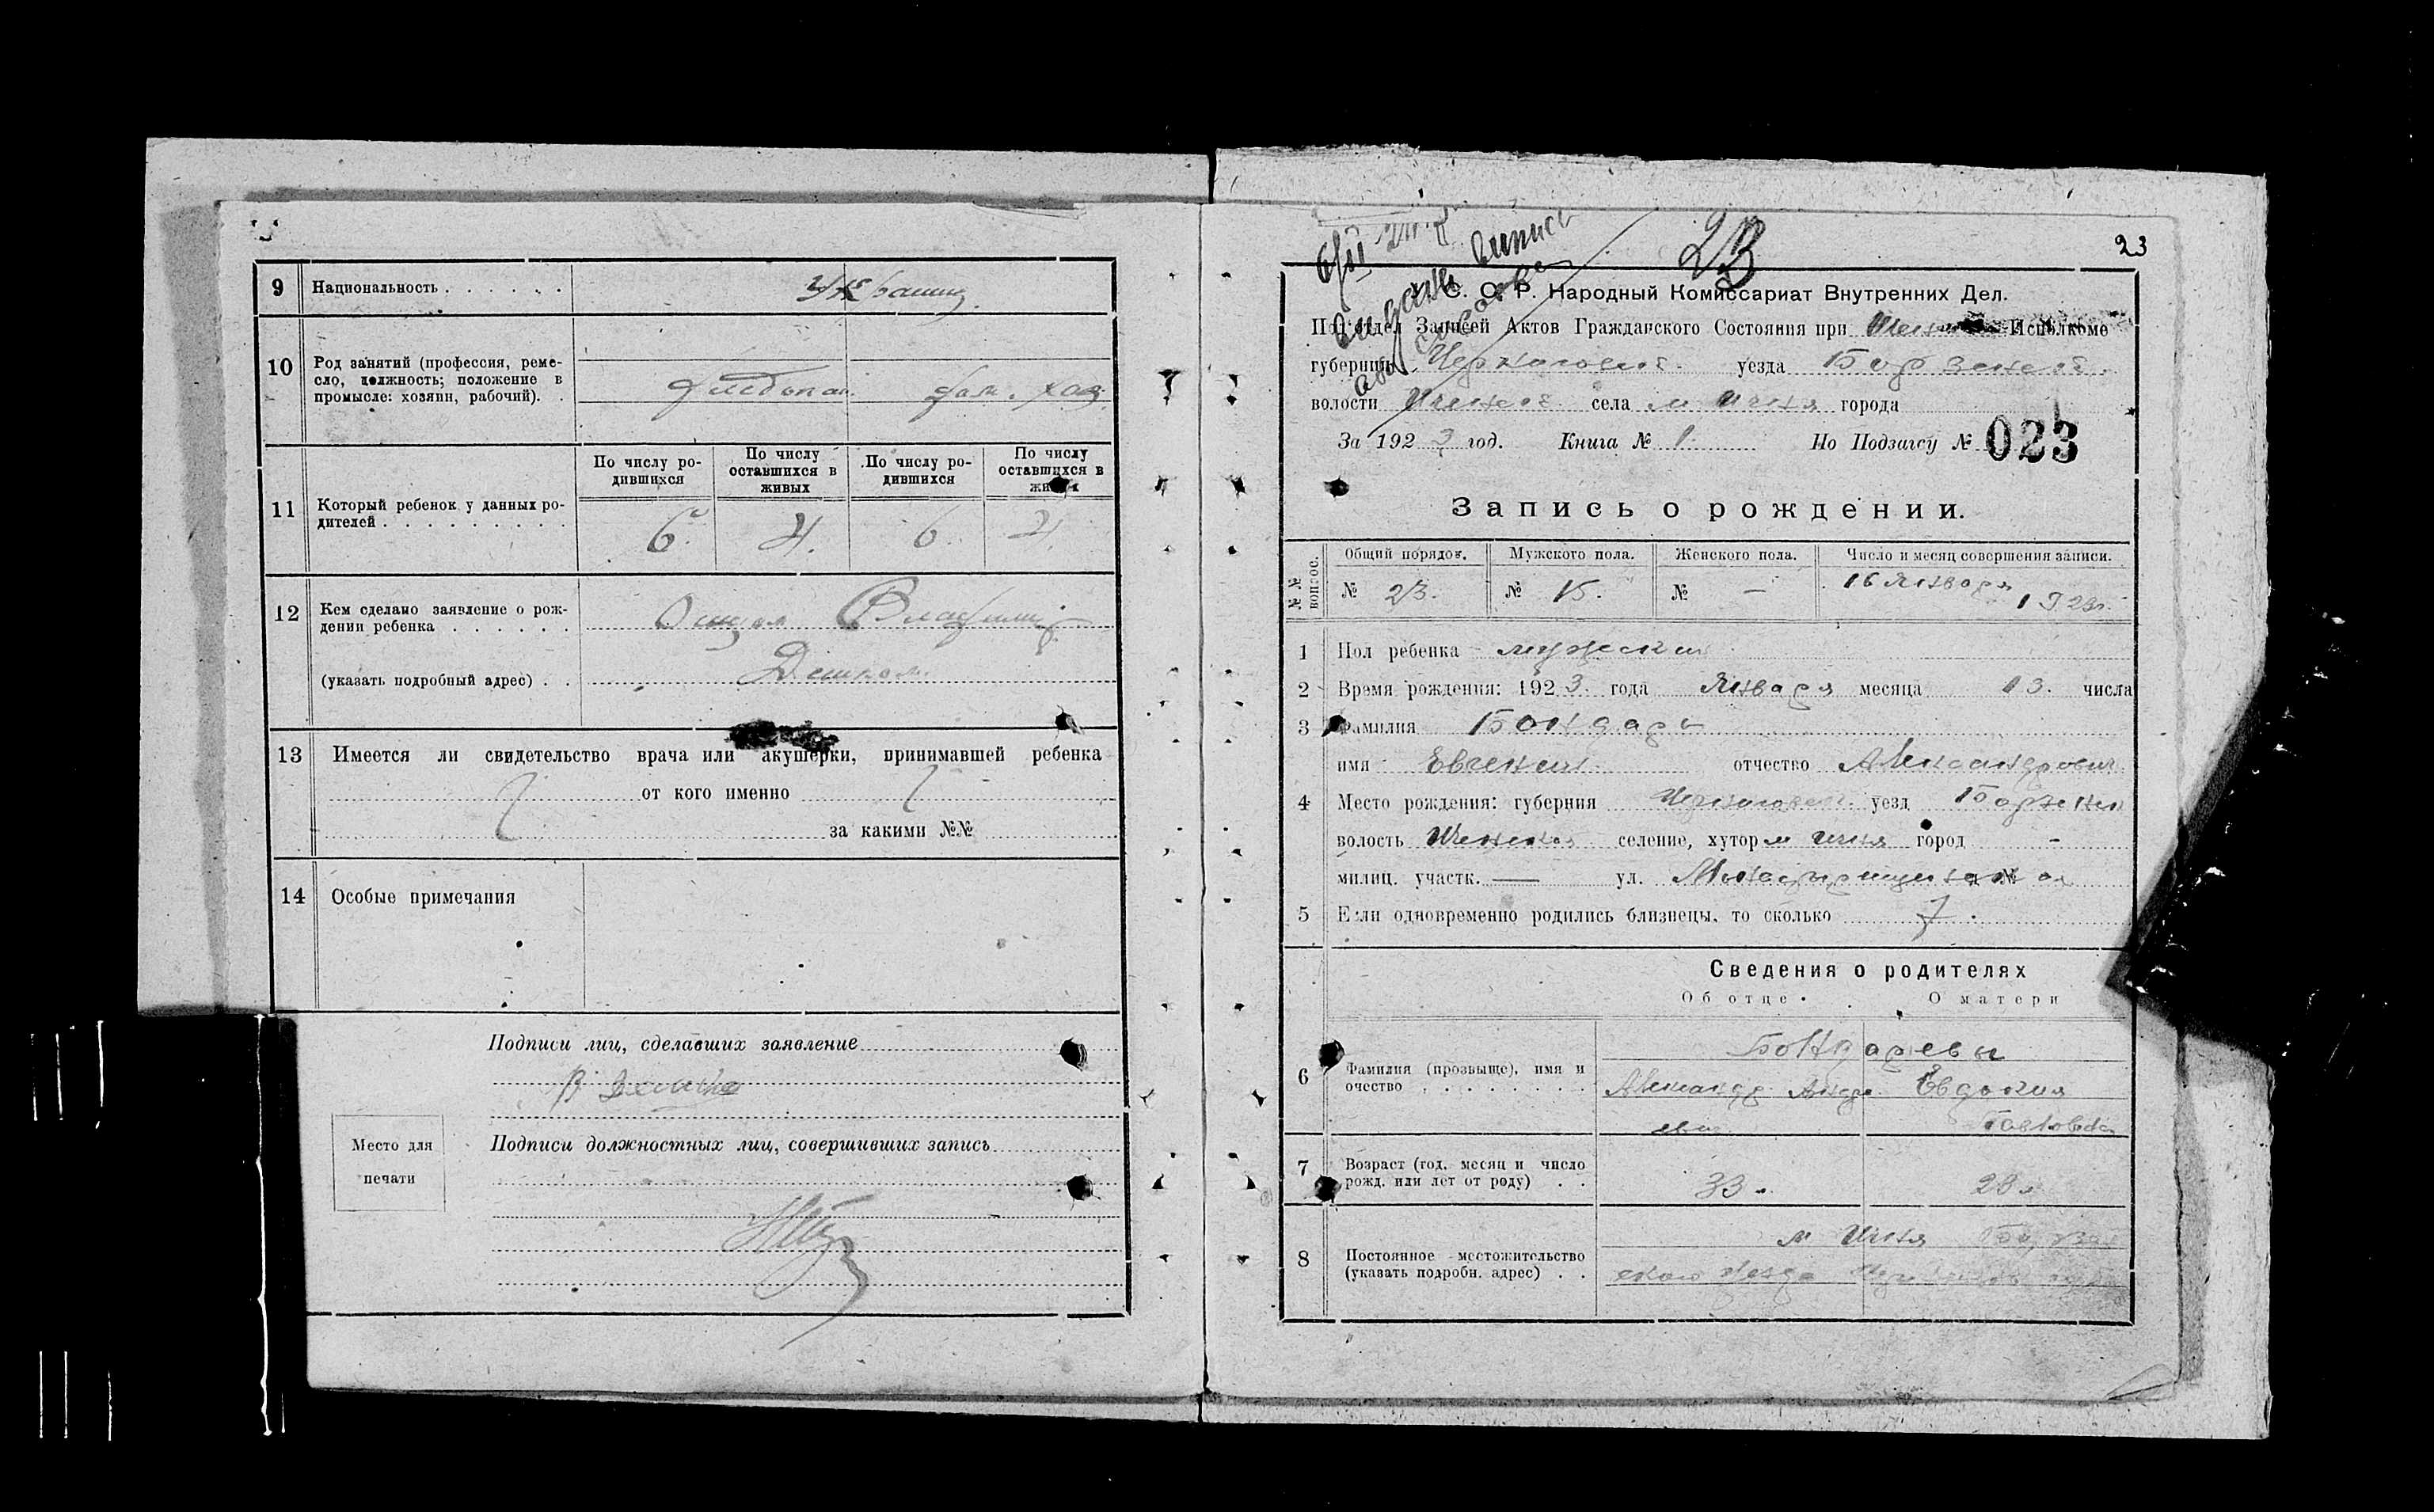 9 Национальность . . . . . .
10 Род занятий (профессия, реме-
сло, должность; положение в
промысле: хозяин, рабочий). .
дом. хоз.
11 Который ребенок у данных ро-
дителей . . . . . . . . . .
По числу ро-
дившихся
По числу
оставшихся в
живых
По числу ро-
дившихся
По числу
оставшихся в
живых
6 4. 6 4
12 Кем сделано заявление о рож-
дении ребенка . . . . . .
Отцом Владимир
(указать подробный адрес) . .
13 Имеется ли свидетельство врача или акушерки, принимавшей ребенка
от кого именно
за какими №№
14 Особые примечания
Подписи лиц, сделавших заявление
Место для
печати
Подписи должностных лиц, совершивших запись
23
23
выдана выписи
С. С. Р. Народный Комиссариат Внутренних Дел.
Подотдел Записей Актов Гражданского Состояния при Исполкоме
губернии Черниговской уезда Борзенской
волости Иченской села м Ичня города
За 1923 год. Книга № 1 По Подзагсу № 023
Запись о рождении.
№№ вопрос.
Общий порядок. Мужского пола. Женского пола. Число и месяц совершения записи.
№ 23. № 15. № — 16 Января
1923г.
1 Пол ребенка мужский
2 Время рождения: 1923. года Января месяца 13. числа
3 Фамилия Бондарь
имя Евгений отчество Александрович
4 Место рождения: губерния Черниговской уезд Борзенский
волость Иченская селение, хутор м Ичня город -
милиц. участк. — ул. №
5 Если одновременно родились близнецы, то сколько
Сведения о родителях
Об отце. О матери
6 Фамилия (прозвыще), имя и
очество . . . . . . . .
Бондаревы
Александр Андре
евич
Евдокия
Павловна
7 Возраст (год, месяц и число
рожд. или лет от роду) . .
33 28
8 Постоянное местожительство
(указать подробн. адрес) . .
м Ичня
ского уезда